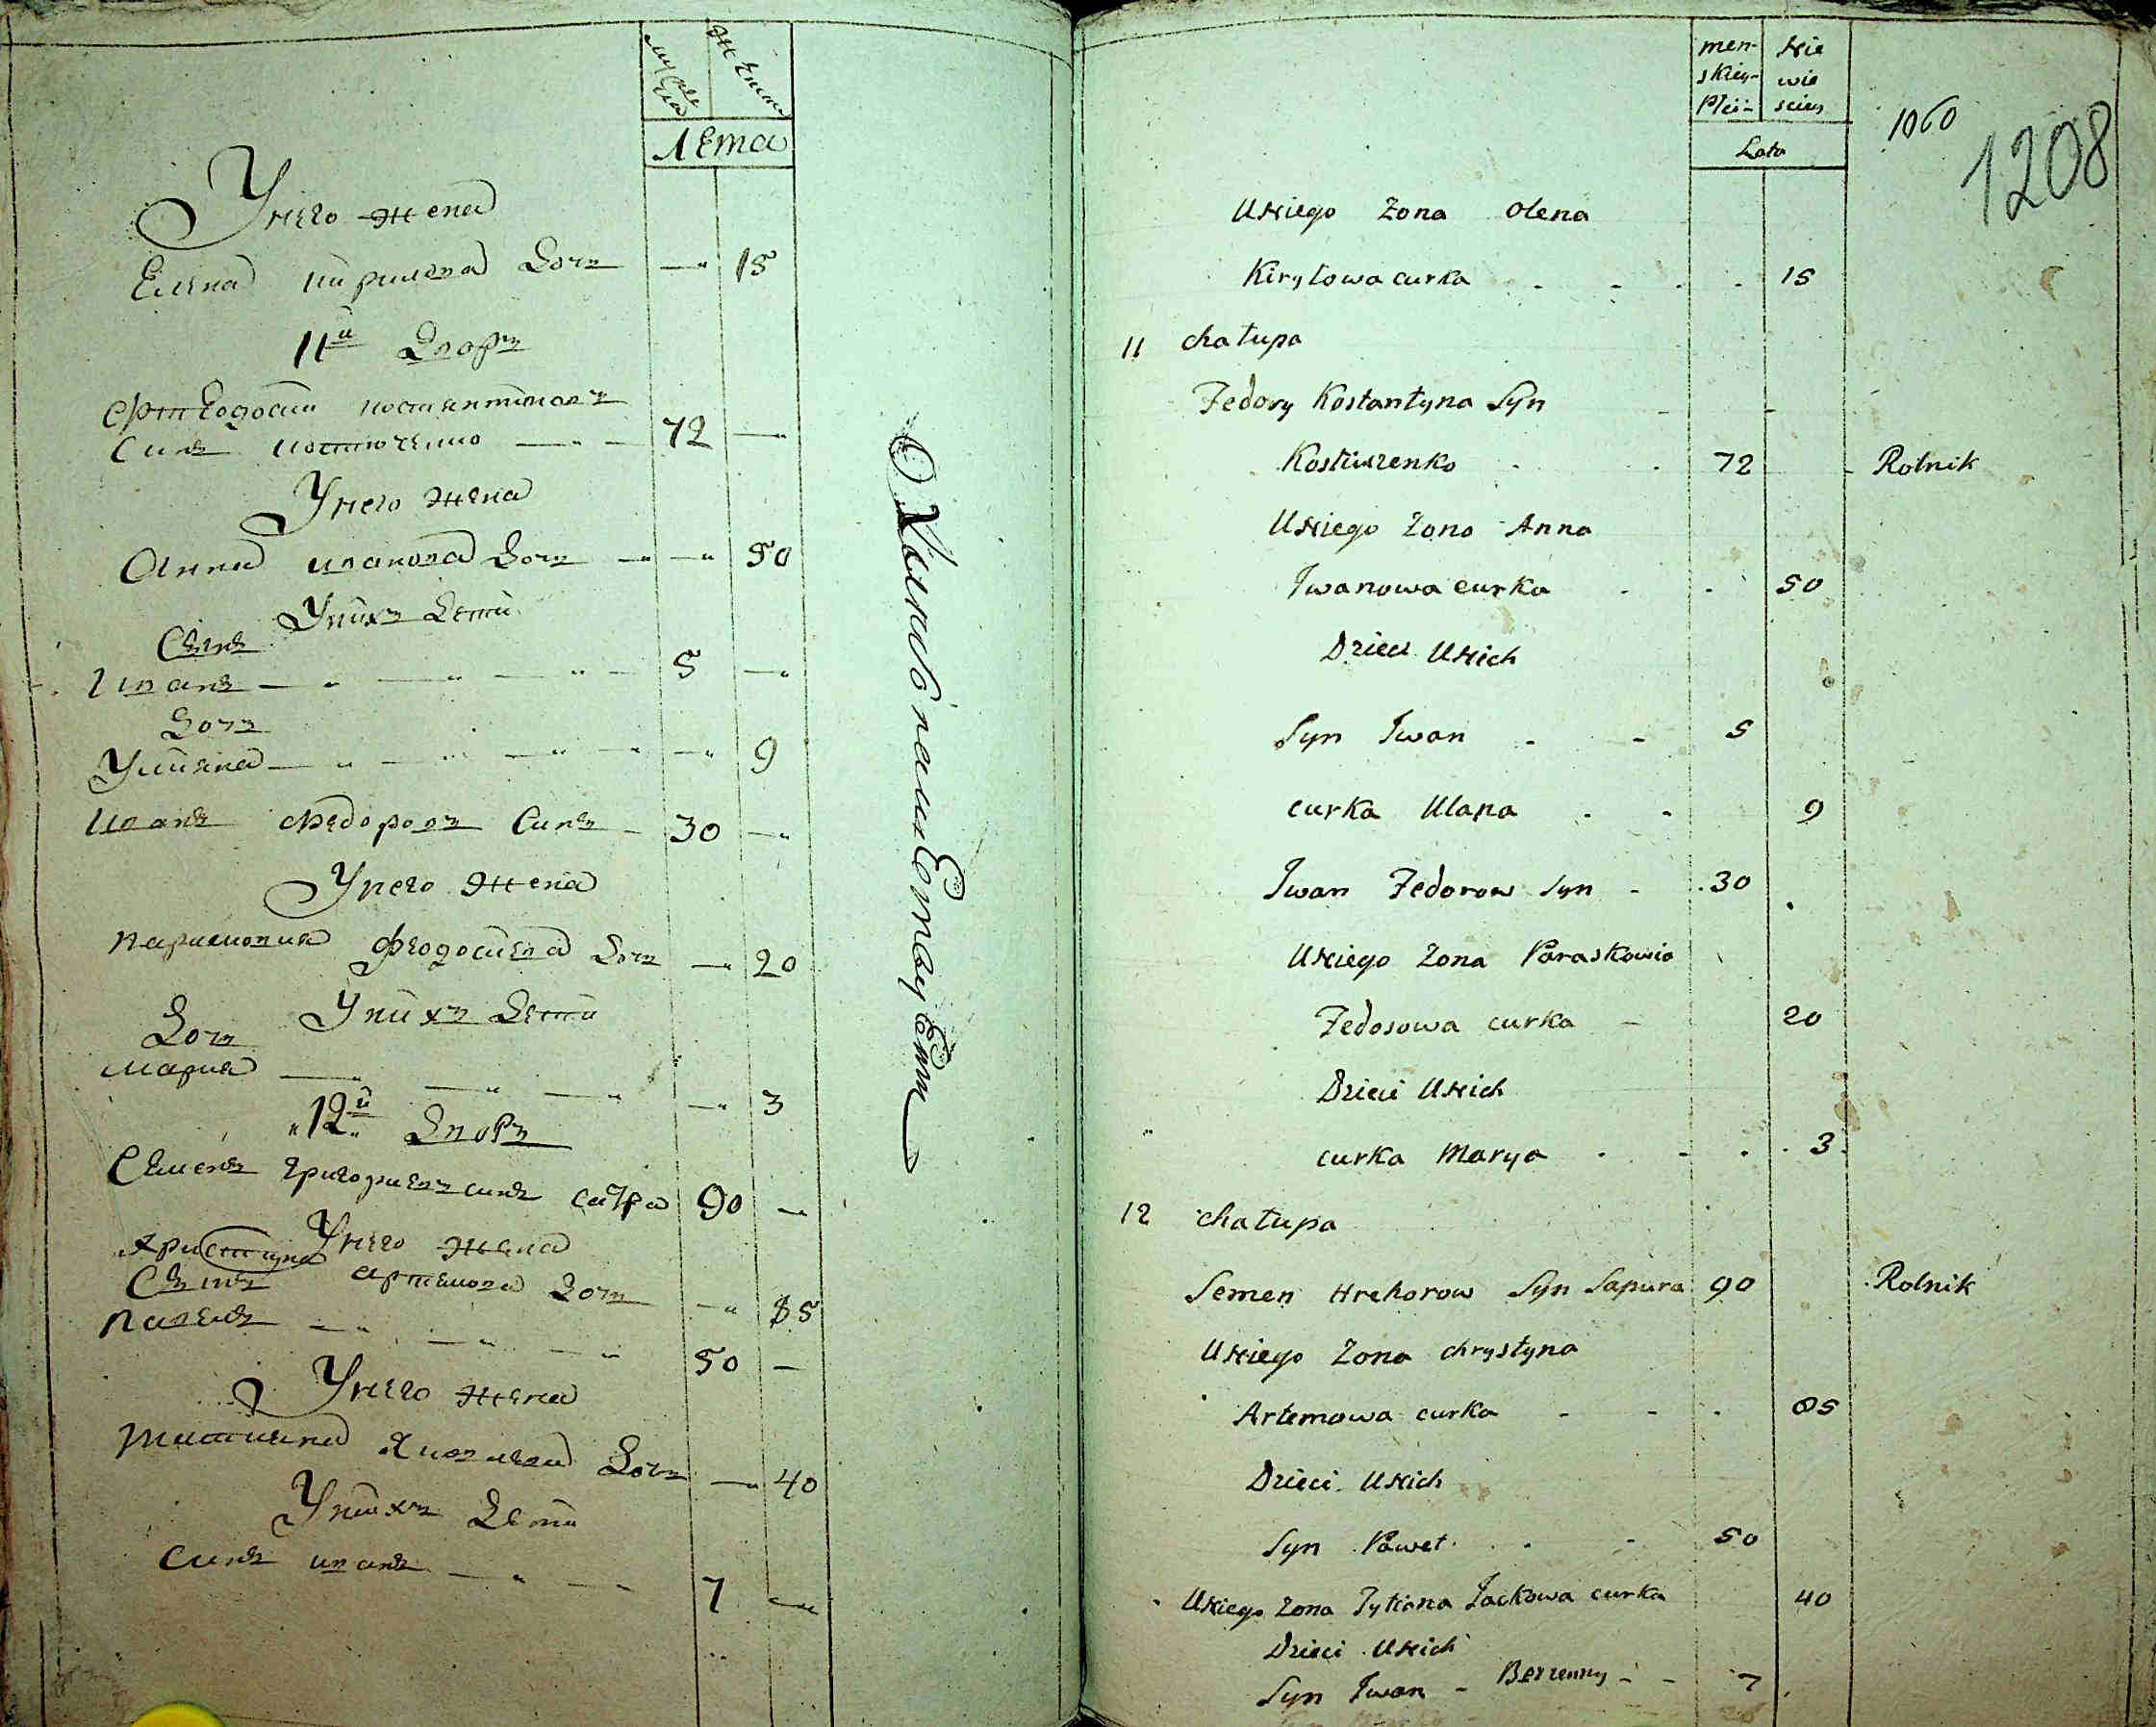 мужеска женска
Лета
У него жена
Елена кирилова Дочь — 15
11й Дворъ
Феодосий костянтинов
Синъ костюченко — 72 —
У него жена
Анна иванова Дочь — — 50
У них Дети
Синъ
Иванъ — 5 —
Дочь
Улияна — — 9
Иванъ Федоровъ Синъ — 30 —
У него жена
Парасковия Феодосиева Дочь — 20
У нихъ Дети
Дочь
Мария — — 3
12й Дворъ
Семенъ григориевъ синъ 90 —
У него жена
Христина
артемова Дочь — 85
Синъ
Павелъ — 50 —
У него жена
Татияна Дочь — 40
У нихъ Дети
Синъ иванъ — 7 —
men-
skiey
Płci-
Nie
wie
sciey
Lata
1060
1208
U Niego Zona Olena
Kiryłowa curka 15
11 chałupa
Fedosy Kostantyna Syn
Kostiuczenko 72 Rolnik
U Niego Zona Anna
Iwanowa curka 50
Dzieci U Nich
Syn Iwan 5
curka Ulana 9
Iwan Fedorow Syn - 30
U Niego Zona Paraskowia
Fedosowa curka - 20
Dzieci U Nich
curka Marya 3
12 chałupa
Semen Hrehorow Syn Sapura 90 Rolnik
U Niego Zona chrystyna
Artemowa curka 85
Dzieci U Nich
Syn Paweł 50
U Niego Zona Tytiana Jackowa curka 40
Dzieci U Nich
Syn Iwan - Bezzenny - - 7